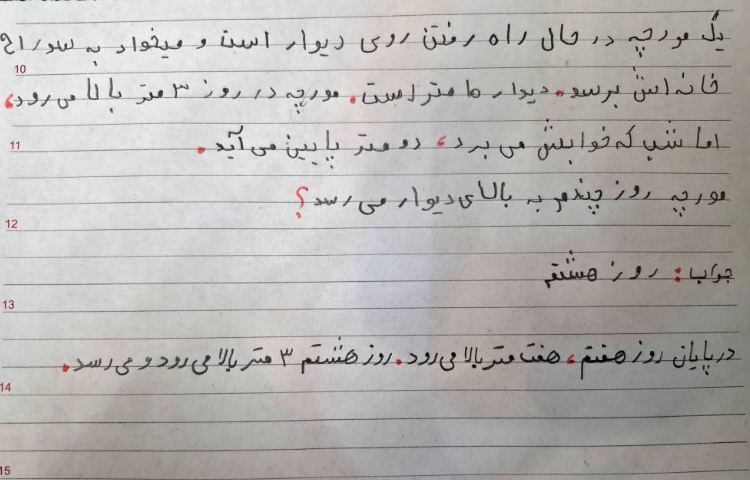 یک مورچه در حال راه رفتن روی دیوار است و میخواد به سوراخ
10
خانه اش برسد. دیوار ۱۰ متر است. مورچه در روز ۳ متر بالا می رود،
11
اما شب که خوابش می برد، دو متر پایین می آید.
مورچه روز چندم به بالای دیوار می رسد؟
12
جواب: روز هشتم
13
در پایان روز هفتم، هفت متر بالا می رود. روز هشتم ۳ متر بالا می رود و می رسد.
14
15